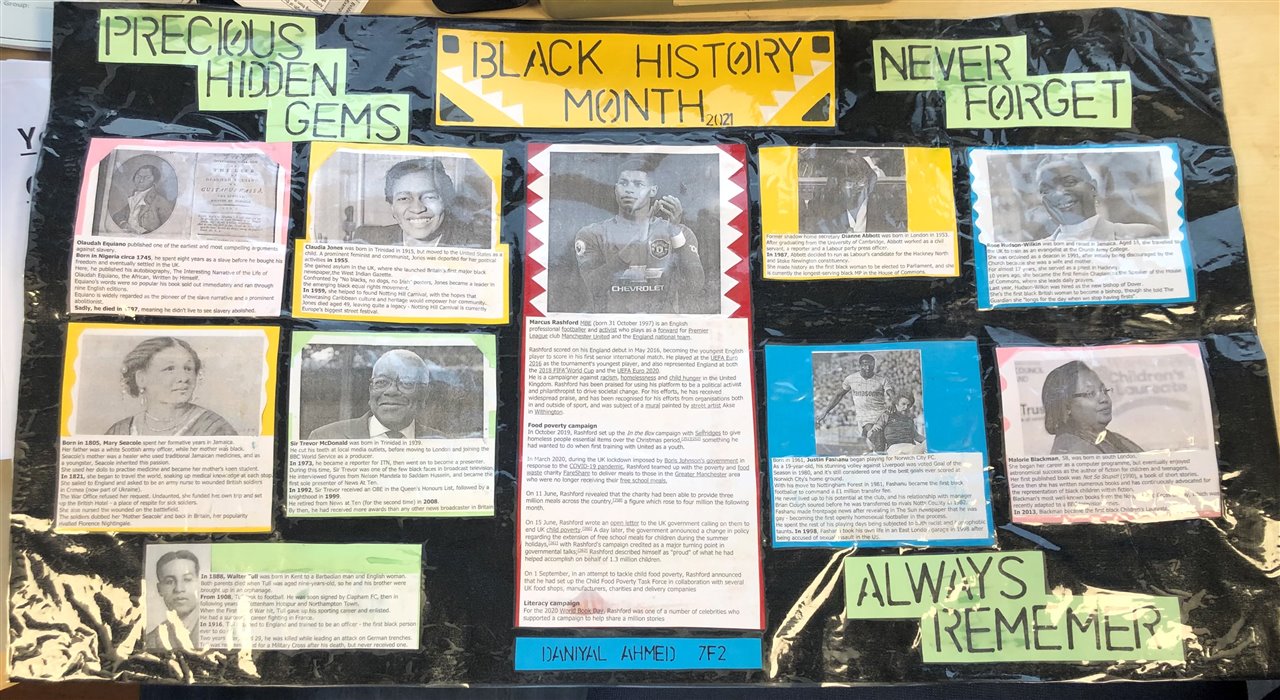 Group:
PRECIOUS
HIDDEN
GEMS
BLACK HISTORY
MONTH 2021
NEVER
FORGET
THE LIFE
GUSTAVUS VASSA
Olaudah Equiano published one of the earliest and most compelling arguments
against slavery.
Born in Nigeria circa 1745, he spent eight years as a slave before he bought his
freedom and eventually settled in the UK.
Here, he published his autobiography, The Interesting Narrative of the Life of
Olaudah Equiano, the African, Written by Himself.
Equiano's words were so popular his book sold out immediately and ran through
nine English editions.
Equiano is widely regarded as the pioneer of the slave narrative and a prominent
abolitionist.
Sadly, he died in 1797, meaning he didn't live to see slavery abolished.
Claudia Jones was born in Trinidad in 1915, but moved to the United States as a
child. A prominent feminist and communist, Jones was deported for her political
activities in 1955.
She gained asylum in the UK, where she launched Britain's first major black
newspaper, the West Indian Gazette.
Confronted by "No Blacks, no dogs, no Irish" posters, Jones became a leader in
the emerging black equal rights movement.
In 1959, she helped to found Notting Hill Carnival, with the hopes that
showcasing Caribbean culture and heritage would empower her community.
Jones died aged 49, leaving quite a legacy - Notting Hill Carnival is currently
Europe's biggest street festival.
CHEVROLET
Marcus Rashford MBE (born 31 October 1997) is an English
professional footballer and activist who plays as a forward for Premier
League club Manchester United and the England national team.
Rashford scored on his England debut in May 2016, becoming the youngest English
player to score in his first senior international match. He played at the UEFA Euro
2016 as the tournament's youngest player, and also represented England at both
the 2018 FIFA World Cup and the UEFA Euro 2020.
He is a campaigner against racism, homelessness and child hunger in the United
Kingdom. Rashford has been praised for using his platform to be a political activist
and philanthropist to drive societal change. For his efforts, he has received
widespread praise, and has been recognised for his efforts from organisations both
in and outside of sport, and was subject of a mural painted by street artist Akse
in Withington.
Food poverty campaign
In October 2019, Rashford set up the In the Box campaign with Selfridges to give
homeless people essential items over the Christmas period, something he
had wanted to do when first training with United as a youth.
In March 2020, during the UK lockdown imposed by Boris Johnson's government in
response to the COVID-19 pandemic, Rashford teamed up with the poverty and food
waste charity FareShare to deliver meals to those in the Greater Manchester area
who were no longer receiving their free school meals.
On 11 June, Rashford revealed that the charity had been able to provide three
million meals across the country, a figure which rose to four million the following
month.
On 15 June, Rashford wrote an open letter to the UK government calling on them to
end UK child poverty. A day later, the government announced a change in policy
regarding the extension of free school meals for children during the summer
holidays, with Rashford's campaign credited as a major turning point in
governmental talks; Rashford described himself as "proud" of what he had
helped accomplish on behalf of 1.3 million children.
On 1 September, in an attempt to tackle child food poverty, Rashford announced
that he had set up the Child Food Poverty Task Force in collaboration with several
UK food shops, manufacturers, charities and delivery companies
Literacy campaign
For the 2020 World Book Day, Rashford was one of a number of celebrities who
supported a campaign to help share a million stories
Former shadow home secretary Dianne Abbott was born in London in 1953.
After graduating from the University of Cambridge, Abbott worked as a civil
servant, a reporter and a Labour party press officer.
In 1987, Abbott decided to run as Labour's candidate for the Hackney North
and Stoke Newington constituency.
She made history as the first black woman to be elected to Parliament, and she
is currently the longest-serving black MP in the House of Commons.
Rose Hudson-Wilkin was born and raised in Jamaica. Aged 18, she travelled to
the UK to train as an evangelist at the Church Army College.
She was ordained as a deacon in 1991, after initially being discouraged by the
Church because she was a wife and mother.
For almost 17 years, she served as a priest in Hackney.
10 years ago, she became the first female Chaplain to the Speaker of the House
of Commons, where she leads daily prayers.
Last year, Hudson-Wilkin was hired as the new bishop of Dover.
She's the first black British woman to become a bishop, though she told The
Guardian she "longs for the day when we stop having firsts"
Born in 1805, Mary Seacole spent her formative years in Jamaica.
Her father was a white Scottish army officer, while her mother was black.
Seacole's mother was a healer who used traditional Jamaican medicines, and as
a youngster, Seacole inherited this passion.
She used her dolls to practice medicine and became her mother's keen student.
In 1821, she began to travel the world, soaking up medical knowledge at each stop.
She sailed to England and asked to be an army nurse to wounded British soldiers
in Crimea (now part of Ukraine).
The War Office refused her request. Undaunted, she funded her own trip and set
up the British Hotel - a place of respite for sick soldiers.
She also nursed the wounded on the battlefield.
The soldiers dubbed her 'Mother Seacole' and back in Britain, her popularity
rivalled Florence Nightingale.
Sir Trevor McDonald was born in Trinidad in 1939.
He cut his teeth at local media outlets, before moving to London and joining the
BBC World Service as a producer.
In 1973, he became a reporter for ITN, then went on to become a presenter.
During this time, Sir Trevor was one of the few black faces in broadcast television.
He interviewed figures from Nelson Mandela to Saddam Hussein, and became the
first sole presenter of News At Ten.
In 1992, Sir Trevor received an OBE in the Queen's Honours List, followed by a
knighthood in 1999.
He retired from News at Ten (for the second time) in 2008.
By then, he had received more awards than any other news broadcaster in Britain
Born in 1961, Justin Fashanu began playing for Norwich City FC.
As a 19-year-old, his stunning volley against Liverpool was voted Goal of the
Season in 1980, and it's still considered one of the best goals ever scored at
Norwich City's home ground.
With his move to Nottingham Forest in 1981, Fashanu became the first black
footballer to command a £1 million transfer fee.
He never lived up to his potential at the club, and his relationship with manager
Brian Clough soured before he was sold to rivals Notts County
Fashanu made frontpage news after revealing in The Sun newspaper that he was
gay - becoming the first openly homosexual footballer in the process.
He spent the rest of his playing days being subjected to both racist and homophobic
taunts. In 1998, Fashanu took his own life in an East London garage in 1998 after
being accused of sexual assault in the US.
Malorie Blackman, 58, was born in south London.
She began her career as a computer programme, but eventually enjoyed
astronomical success as the author of fiction for children and teenagers.
Her first published book was Not So Stupid! (1990), a book of short stories.
Since then she was written numerous books and has continuously advocated for
the representation of black children
Blackman's most well-known books
recently adapted to a BBC
In 2013, Blackman became the first black Children's Laureate.
In 1888, Walter Tull was born in Kent to a Barbadian man and English woman.
Both parents died when Tull was aged nine-years-old, so he and his brother were
brought up in an orphanage.
From 1908, Tull took to football. He was soon signed by Clapham FC, then in
following years Tottenham Hotspur and Northampton Town.
When the First World War hit, Tull gave up his sporting career and enlisted.
He had a career fighting in France.
In 1916, Tull returned to England and trained to be an officer - the first black person
ever to do
Two years 29, he was killed while leading an attack on German trenches.
Tull was for a Military Cross after his death, but never received one.
ALWAYS
REMEMER
DANIYAL AHMED 7F2